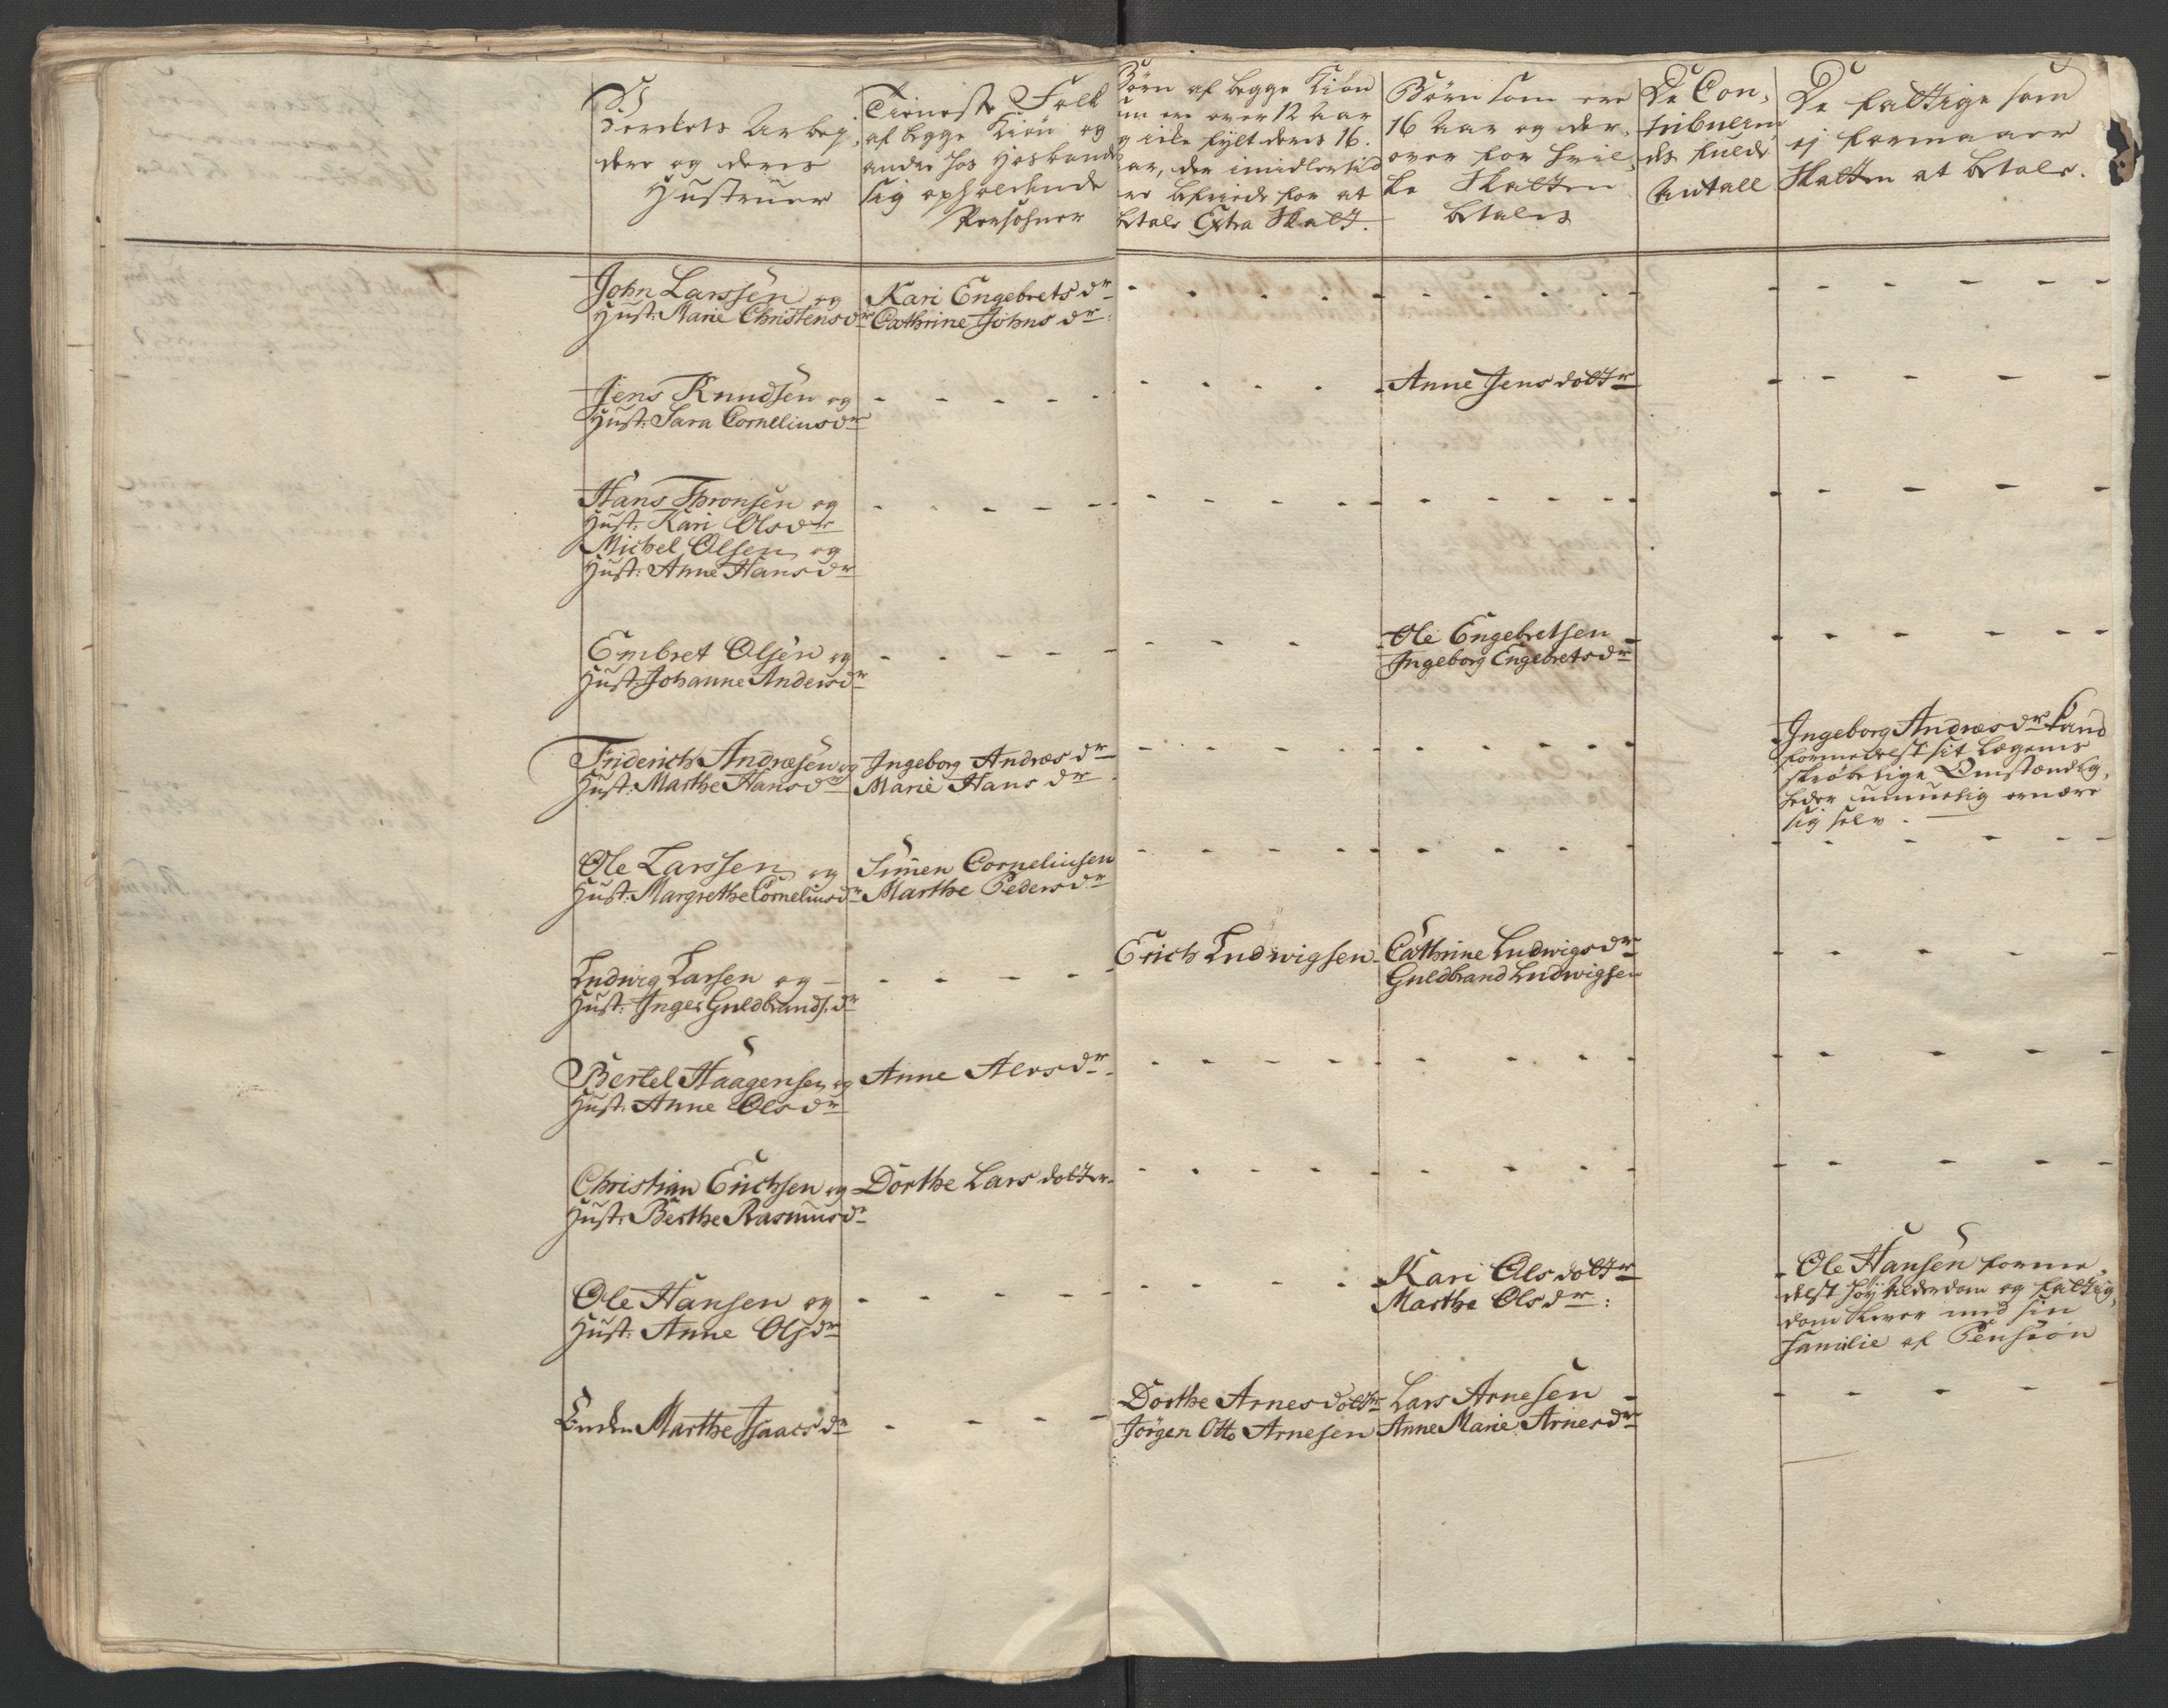 Verckets Arbey,
dere og deres
Hustruer
Tieneste Folk
af begge Kiøn og
andre hos Hosbonde
sig opholdende
Persohner
Børn af begge Kiøn
som ere over 12 Aar
og icke fylt deres 16.
Aar, der imidlertid
ere befriede for at
betale Extra Skatt.
Børn som ere
16 Aar og der,
over for hvil,
ke Skatten
betales
De Con,
tribueren
des fulde
Antall
De fattige som
ej formaaer
Skatten at betale.
John Larssen og
Hust: Marie Christensdr
Kari Engebretsdr
Cathrine Johnsdr:
Jens Knudsen og
Hust: Sara Corneliusdr
Anne Jensdottr
Hans Thronsen og
Hust: Kari Olsdr
Michel Olsen og
Hust: Anne Hansdr
Embret Olsen og
Hust: Johanne Andersdr
Ole Engebretsen
Ingeborg Engebretsdr
Friderich Andræsen og
Hust: Marthe Hansdr
Ingeborg Andræsdr
Marie Hansdr
Ingeborg Andræsdr kand
formedelst sit Legems
skrøbelige Omstændig,
heder umuelig ernære
sig selv.
Ole Larssen og
Hust: Margrethe Corneliusdr
Simen Corneliusen
Marthe Pedersdr
Ludwig Larsen og
Hust: Inger Guldbrands.dr
Erich Ludwigsen
Cathrine Ludwigsdr
Guldbrand Ludwigsen
Bertel Haagensen og
Hust: Anne Olsdr
Anne Alvsdr.
Christian Erichsen og
Hust: Berthe Rasmusdr
Dorthe Larsdotter
Ole Hansen og
Hust: Anne Olsdr
Kari Olsdottr
Marthe Olsdr:
Ole Hansen forme,
delst høy Alderdom og fattig,
dom lever med sin
Familie af Pension
Enken Marthe Isaacsdr
Dorthe Arnesdottr
Jörgen Otto Arnesen
Lars Arnesen
Anne Marie Arnesdr